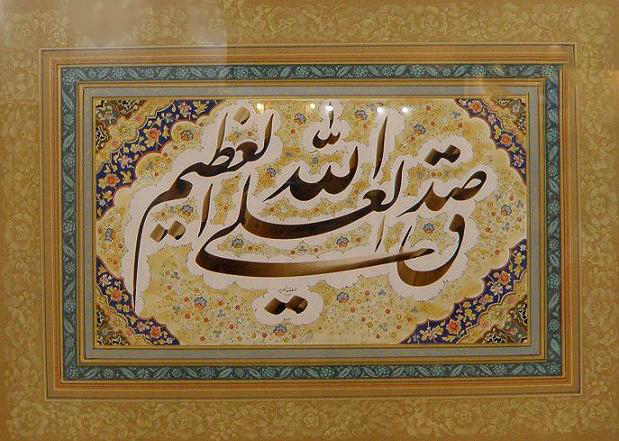 صدق الله العلی العظیم